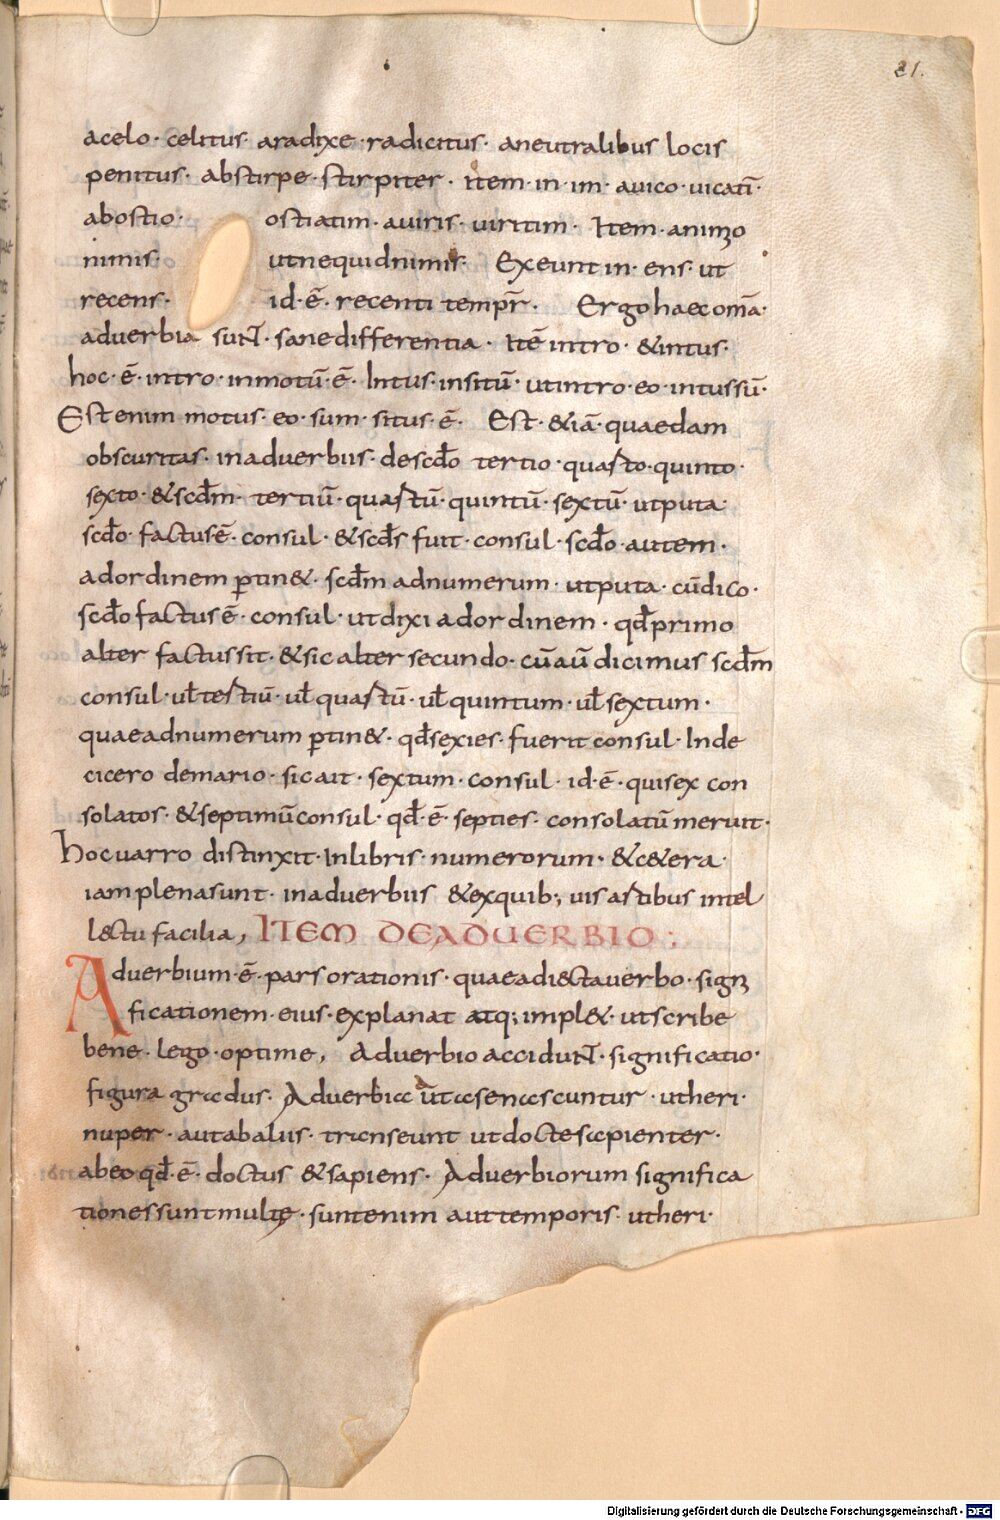 21.
acelo· celitus· aradixe·radicitus· aneutralibus locis
penitus· abstirpe·stirpiter· item·in·im· auico·uicati̅·
abostio· ostiatim·auiris·uiritim· Item·animo
nimis· utnequidnimis· Exeunt in·ens·ut
recens· id·e̅· recenti temp̅r· Ergo haec om̅a·
aduerbia sunt· sane differentia· Ite̅ intro· &intus·
hoc·e̅·intro·inmotu̅·e̅· Intus·insitu̅· utintro·eo·intus su̅·
Est enim motus· eo· sum· situs·e̅· Est·&ia̅·quaedam
obscuritas· inaduerbiis· desc̅do tertio·quarto·quinto·
sexto·&sc̅dm· tertiu̅·quartu̅·quintu̅·sextu̅·utputa·
sc̅do· factuse̅· consul·&sc̅ds fuit·consul·sc̅do·autem·
adordinem p̅tin&·sc̅dm adnumerum·utputa·cu̅dico·
sc̅do factus e̅·consul·utdixi adordinem·qd̅primo
alter factus sit·&sic alter secundo·cu̅au̅ dicimus sc̅dm
consul·ul̅tertiu̅·ul̅ quartu̅·ul̅quintum·ul̅sextum·
quaeadnumerum p̅tin&·qd̅sexies·fuerit consul·Inde
cicero demario·sicait·sextum·consul·id·e̅·quisex con
solatos·&septimu̅consul·qd̅·e̅·septies·consolatu̅meruit·
hocuarro distinxit·Inlibris·numerorum·&c&era·
iamplenasunt·inaduerbiis &exquib; uis artibus intel
lectu facilia, ITEM DEADUERBIO:
Aduerbium·e̅·pars orationis·quaeadiectauerbo·signi
ficationem·eius·explanat atq; impl&·utscribe
bene·lego·optime, Aduerbio accidunt·significatio·
figura gradus· Aduerbia ut̅ asenascuntur·utheri·
nuper·autabaliis·transeunt utdoctesapienter·
abeo qd̅·e̅·doctus &sapiens· Aduerbiorum significa
tiones sunt multę·suntenim aut temporis·utheri·
Digitalisierung gefördert durch die Deutsche Forschungsgemeinschaft - DFG